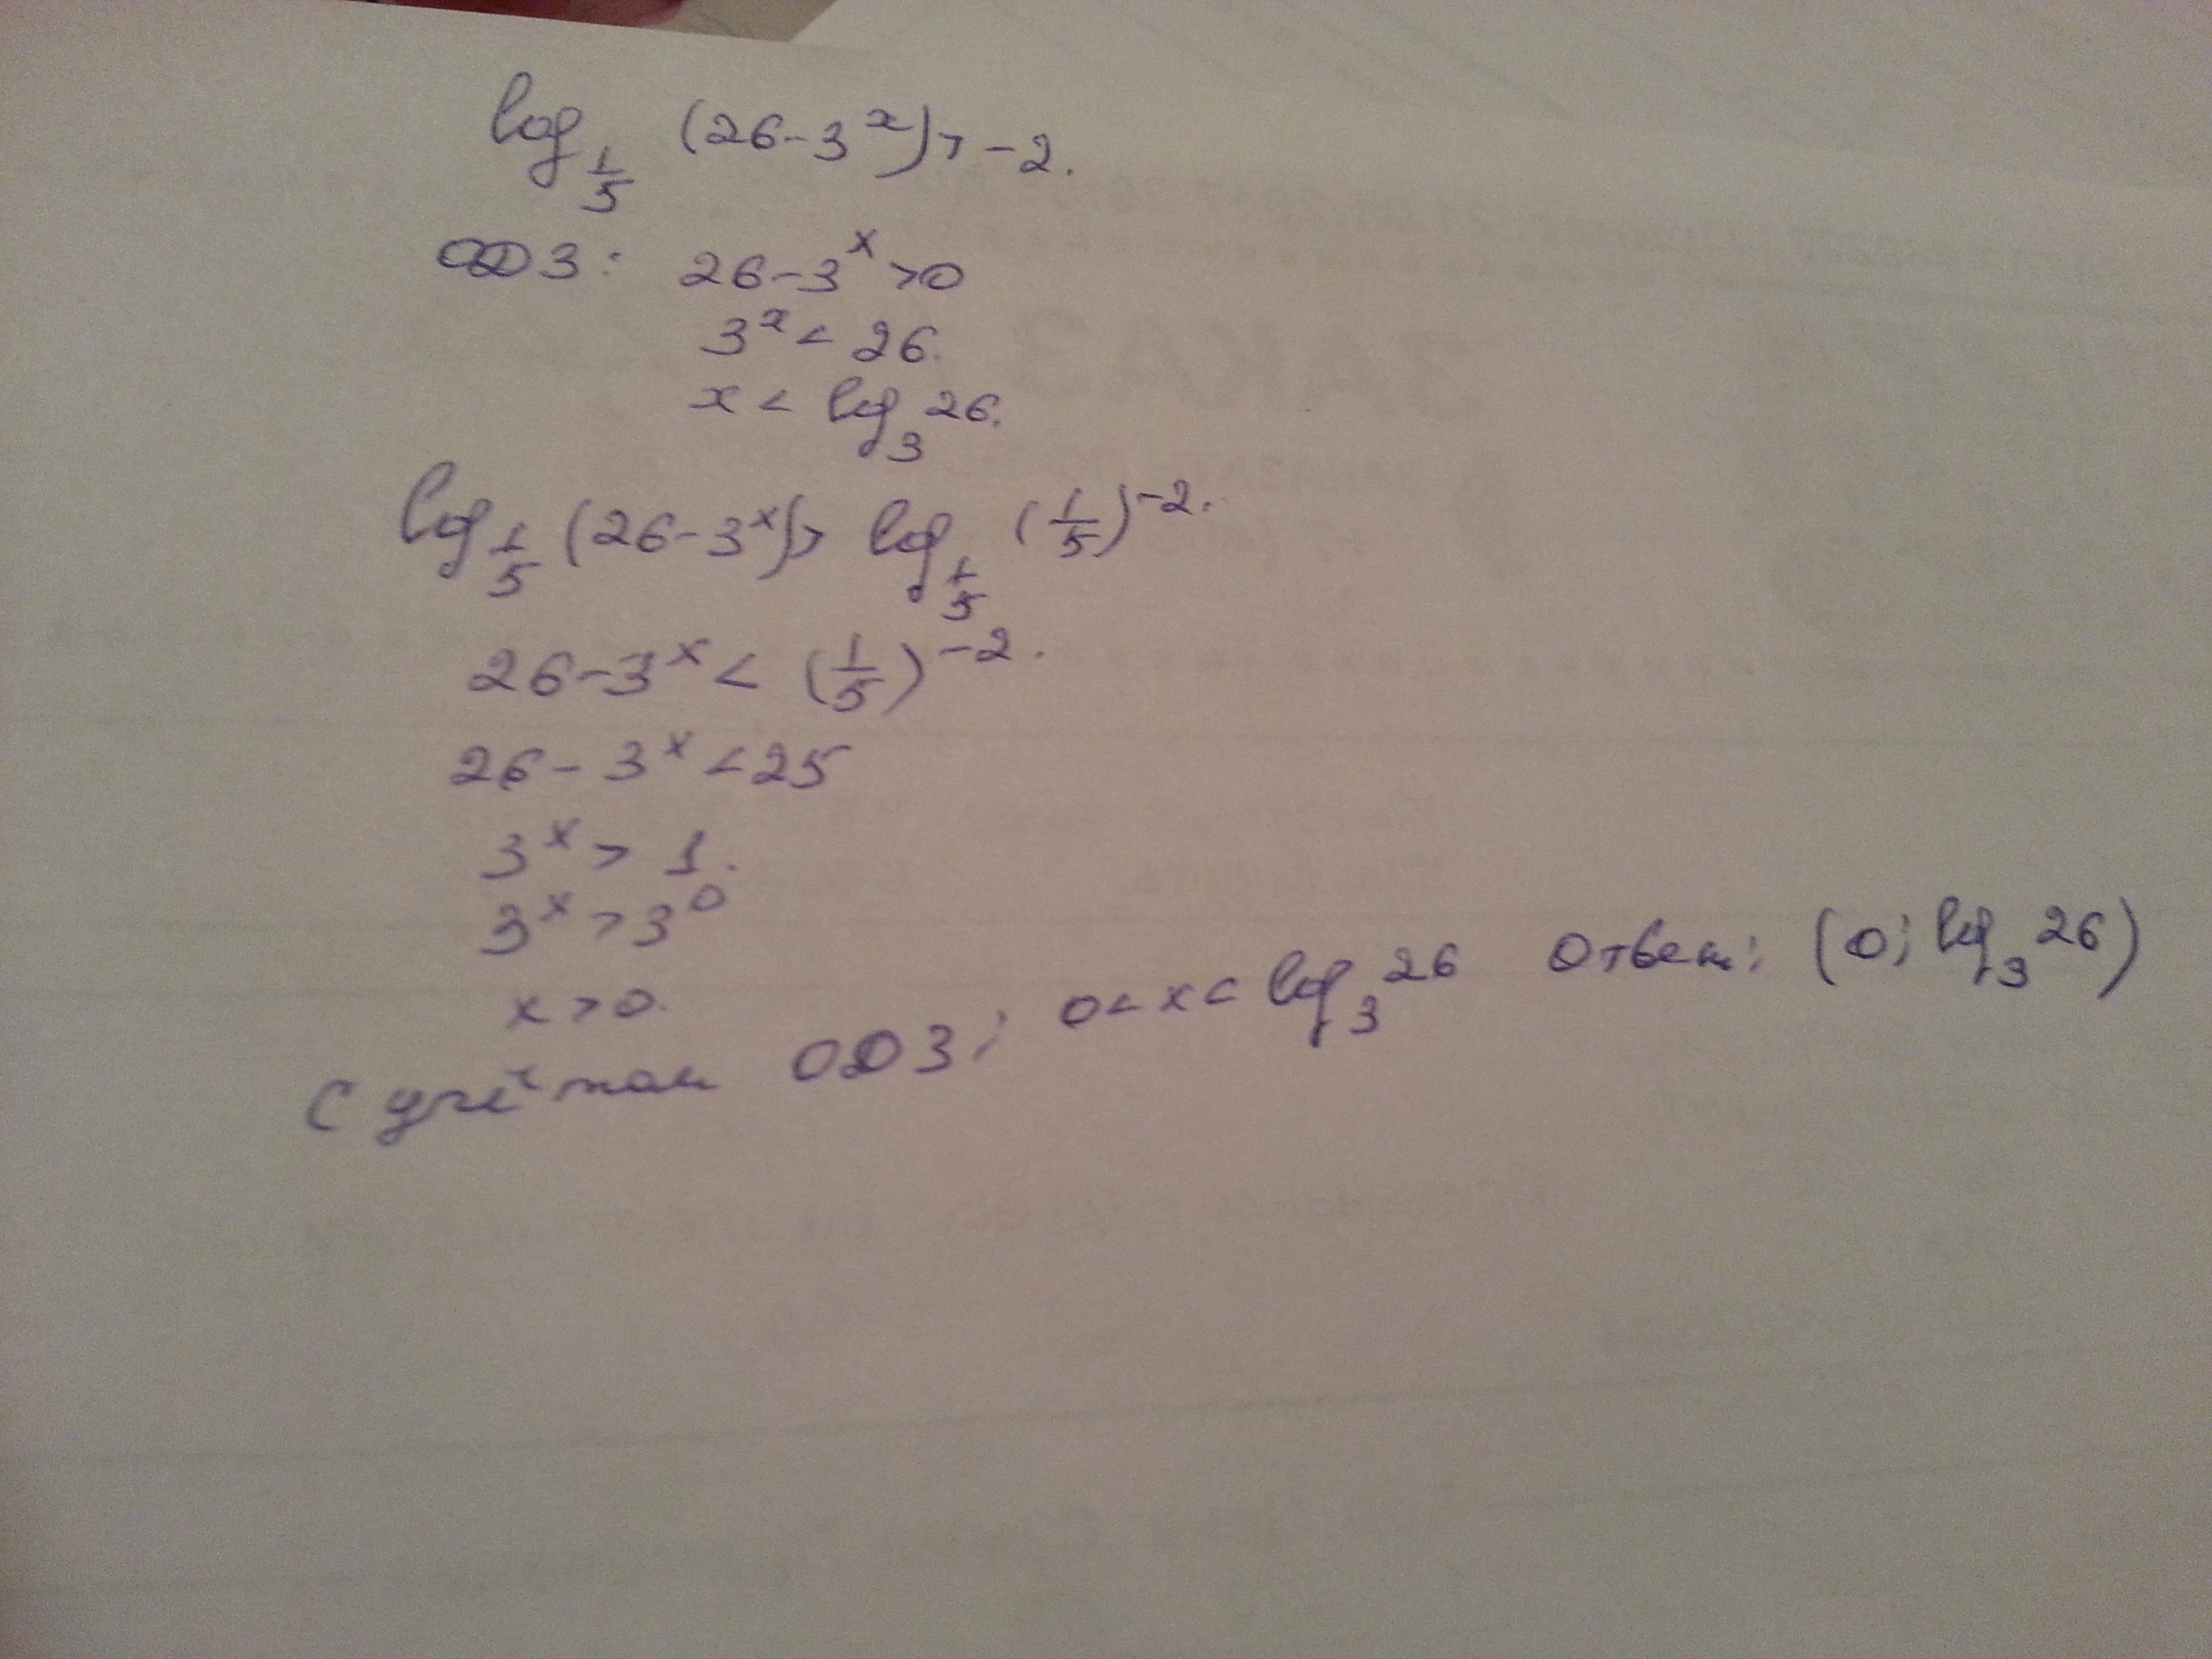 log_{1/5} (26-3^x) > -2.
ОДЗ: 26-3^x >0
3^x < 26.
x < log_3 26.
log_{1/5} (26-3^x) > log_{1/5} (1/5)^{-2}.
26-3^x < (1/5)^{-2}.
26-3^x <25
3^x > 1.
3^x > 3^0
x > 0.
С учётом ОДЗ: 0 < x < log_3 26 Ответ: (0; log_3 26)
ЗАКАЗ